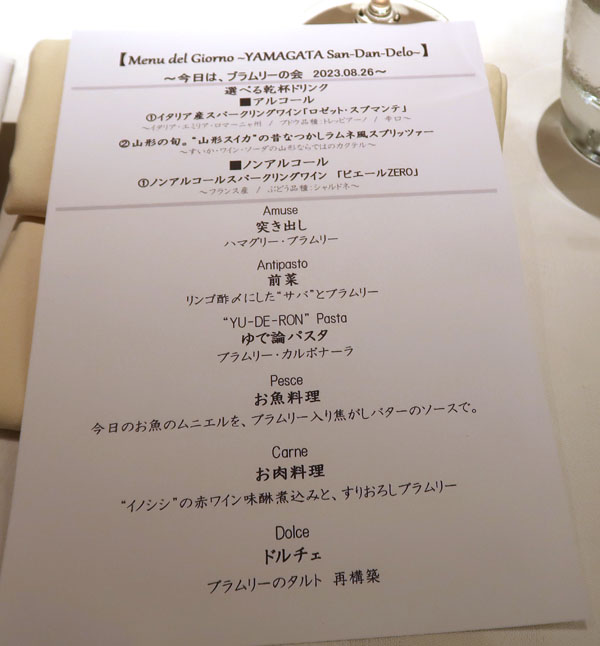 【Menu del Giorno ~YAMAGATA San-Dan-Delo~】
～今日は、ブラムリーの会　2023.08.26～
選べる乾杯ドリンク
■アルコール
①イタリア産スパークリングワイン「ロゼット・スプマンテ」
～イタリア・エミリア・ロマーニャ州　/　ブドウ品種:トレッビアーノ　/　辛口～
②山形の旬。“山形スイカ”の昔なつかしラムネ風スプリッツァー
～すいか・ワイン・ソーダの山形ならではのカクテル～
■ノンアルコール
①ノンアルコールスパークリングワイン　「ピエールZERO」
～フランス産　/　ぶどう品種:シャルドネ～
Amuse
突き出し
ハマグリー・ブラムリー
Antipasto
前菜
リンゴ酢〆にした“サバ”とブラムリー
“YU-DE-RON” Pasta
ゆで論パスタ
ブラムリー・カルボナーラ
Pesce
お魚料理
今日のお魚のムニエルを、ブラムリー入り焦がしバターのソースで。
Carne
お肉料理
“イノシシ”の赤ワイン味醂煮込みと、すりおろしブラムリー
Dolce
ドルチェ
ブラムリーのタルト　再構築